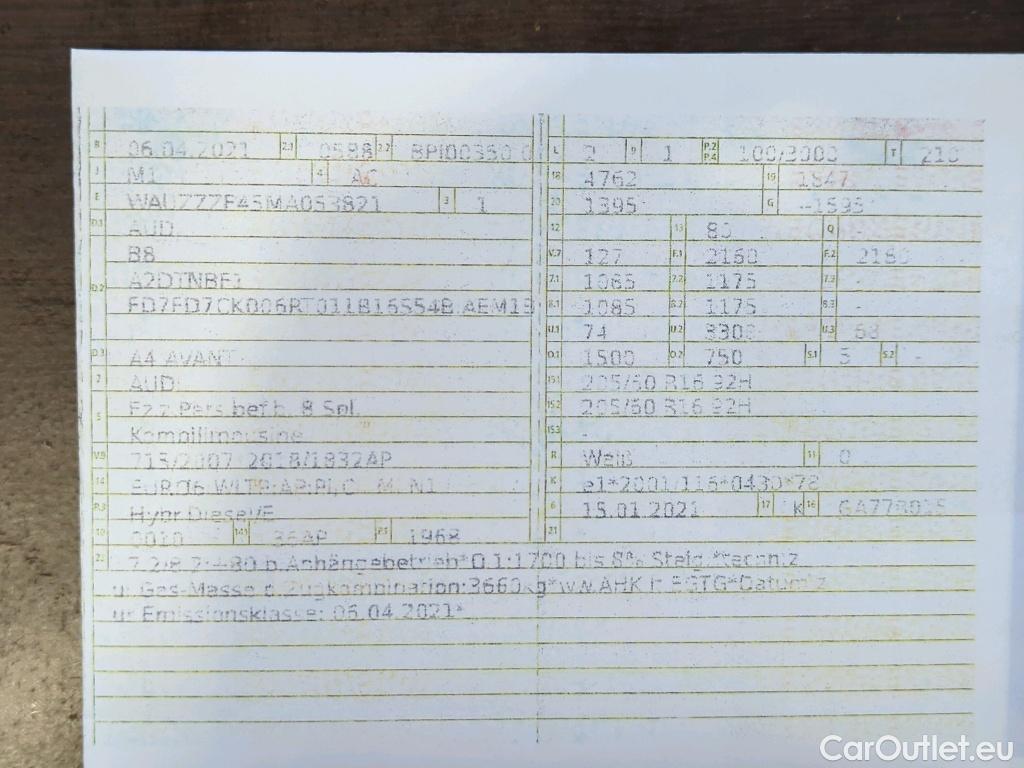 B 06.04.2021 2.1 0588 2.2 BPI00350 0
J M1 4 AC
E WAUZZZF45MA053821 3 1
D.1 AUDI
B8
D.2 A2DTNBF1
FD7FD7CK006RT011B16S54B AEM1S
D.3 A4 AVANT
2 AUDI
5 Fz.z.Pers.bef.b. 8 Spl.
Kombilimousine
V.9 715/2007*2018/1832AP
14 EURO6 WLTP;AP;PI,C M, N1
P.3 Hybr.Diesel/E
10 0010 14.1 36AP P.1 1968
L 2 9 1 P.2 P.4 100/3000 T 210
18 4762 19 1847
20 1395 G -1595
12 13 80 Q
V.7 127 F.1 2160 F.2 2160
7.1 1085 7.2 1175 7.3 -
8.1 1085 8.2 1175 8.3 -
U.1 74 U.2 3308 U.3 68
O.1 1500 O.2 750 S.1 5 S.2 -
15.1 205/60 R16 92H
15.2 205/60 R16 92H
15.3 -
R Weiß 11 0
K e1*2001/116*0430*78
6 15.01.2021 17 K 16
21
22 7.2/8.2:+80 b.Anhängebetrieb*O.1:1700 bis 8% Steig.*techn.z
ul Ges-Masse d. Zugkombination:3660kg*w.w.AHK lt.EGTG*Datum z
ur Emissionsklasse: 06.04.2021*
CarOutlet.eu